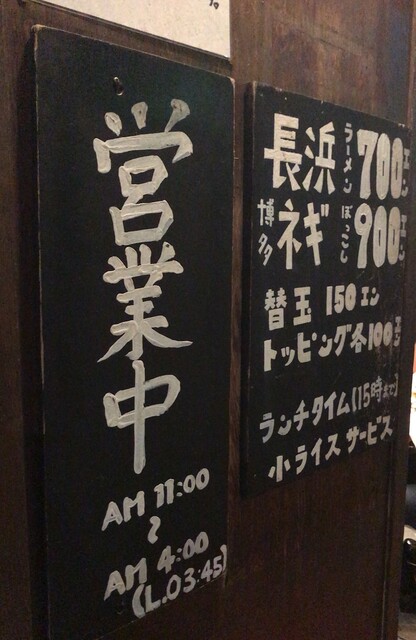 営業中
AM 11:00
～
AM 4:00
(L.03:45)
長浜ラーメン700エン
博多ネギぼっこし900エン
替玉 150エン
トッピング各100エン
ランチタイム(15時まで)
小ライスサービス